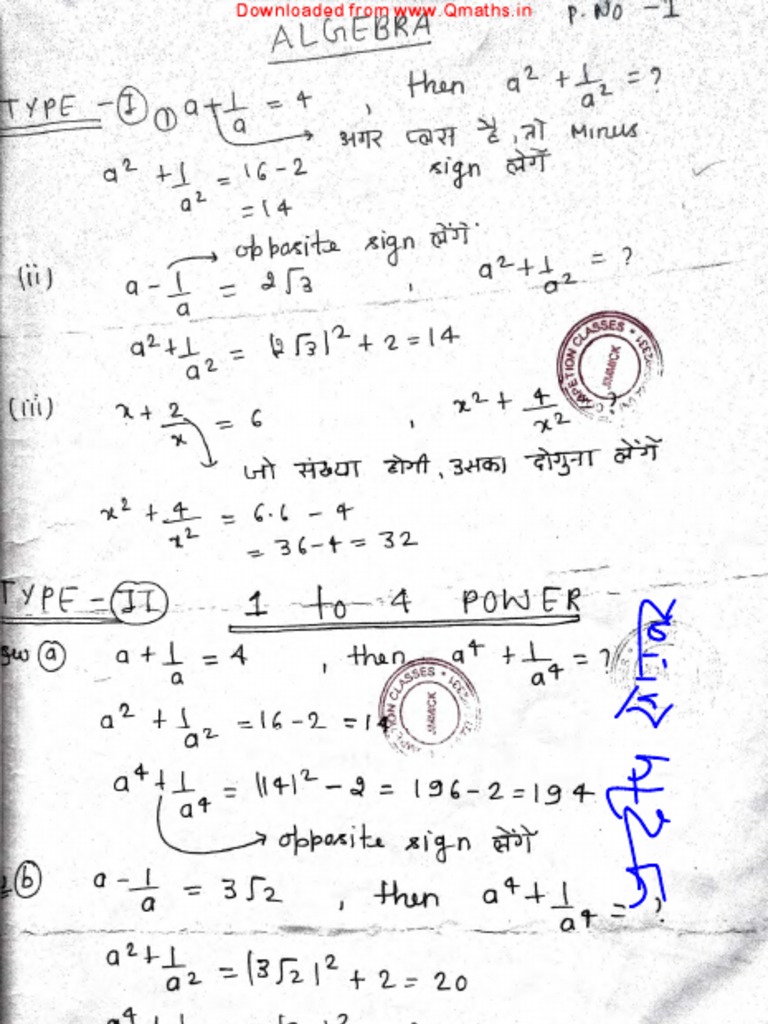 Downloaded from www.Qmaths.in
P. NO - 1
ALGEBRA
TYPE - I ① a + 1/a = 4 , then a² + 1/a² = ?
अगर प्लस है, तो Minus
sign लेगें
a² + 1/a² = 16 - 2
= 14
opposite sign लेंगे
(ii) a - 1/a = 2√3 , a² + 1/a² = ?
a² + 1/a² = (2√3)² + 2 = 14
(iii) x + 2/x = 6 , x² + 4/x² ?
जो संख्या होगी, उसका दोगुना लेंगें
x² + 4/x² = 6·6 - 4
= 36 - 4 = 32
TYPE - II 1 to 4 POWER
ⓐ a + 1/a = 4 , then a⁴ + 1/a⁴ = ?
a² + 1/a² = 16 - 2 = 14
a⁴ + 1/a⁴ = (14)² - 2 = 196 - 2 = 194
opposite sign लेंगे
ⓑ a - 1/a = 3√2 , then a⁴ + 1/a⁴ = ?
a² + 1/a² = (3√2)² + 2 = 20
CLASSES
JIMMICK
CLASSES
JIMMICK